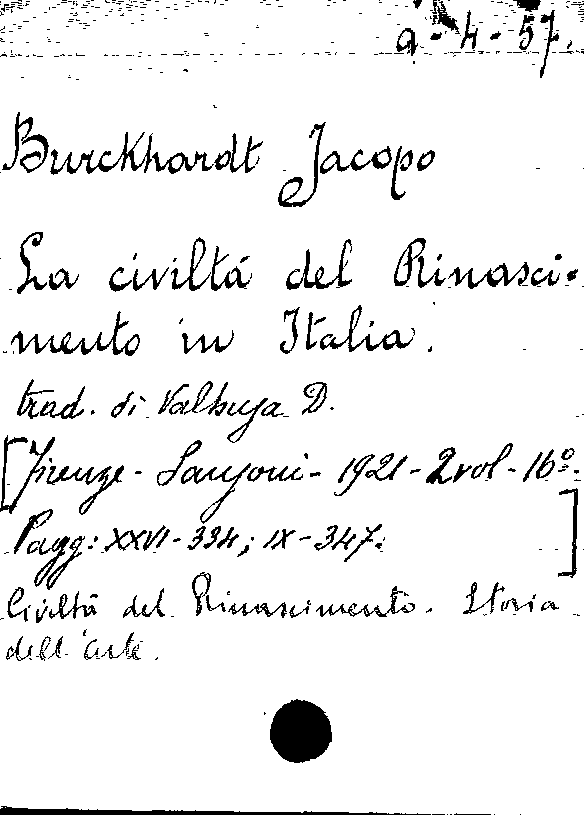 a-4-57.
Burckhardt Jacopo
La civiltá del Rinasci-
mento in Italia.
trad. di Valbusa D.
[Firenze - Sansoni - 1921 - 2 vol - 16º.
Pagg: XXVI - 334; IX - 347.]
Civiltá del Rinascimento. Storia
dell'arte.